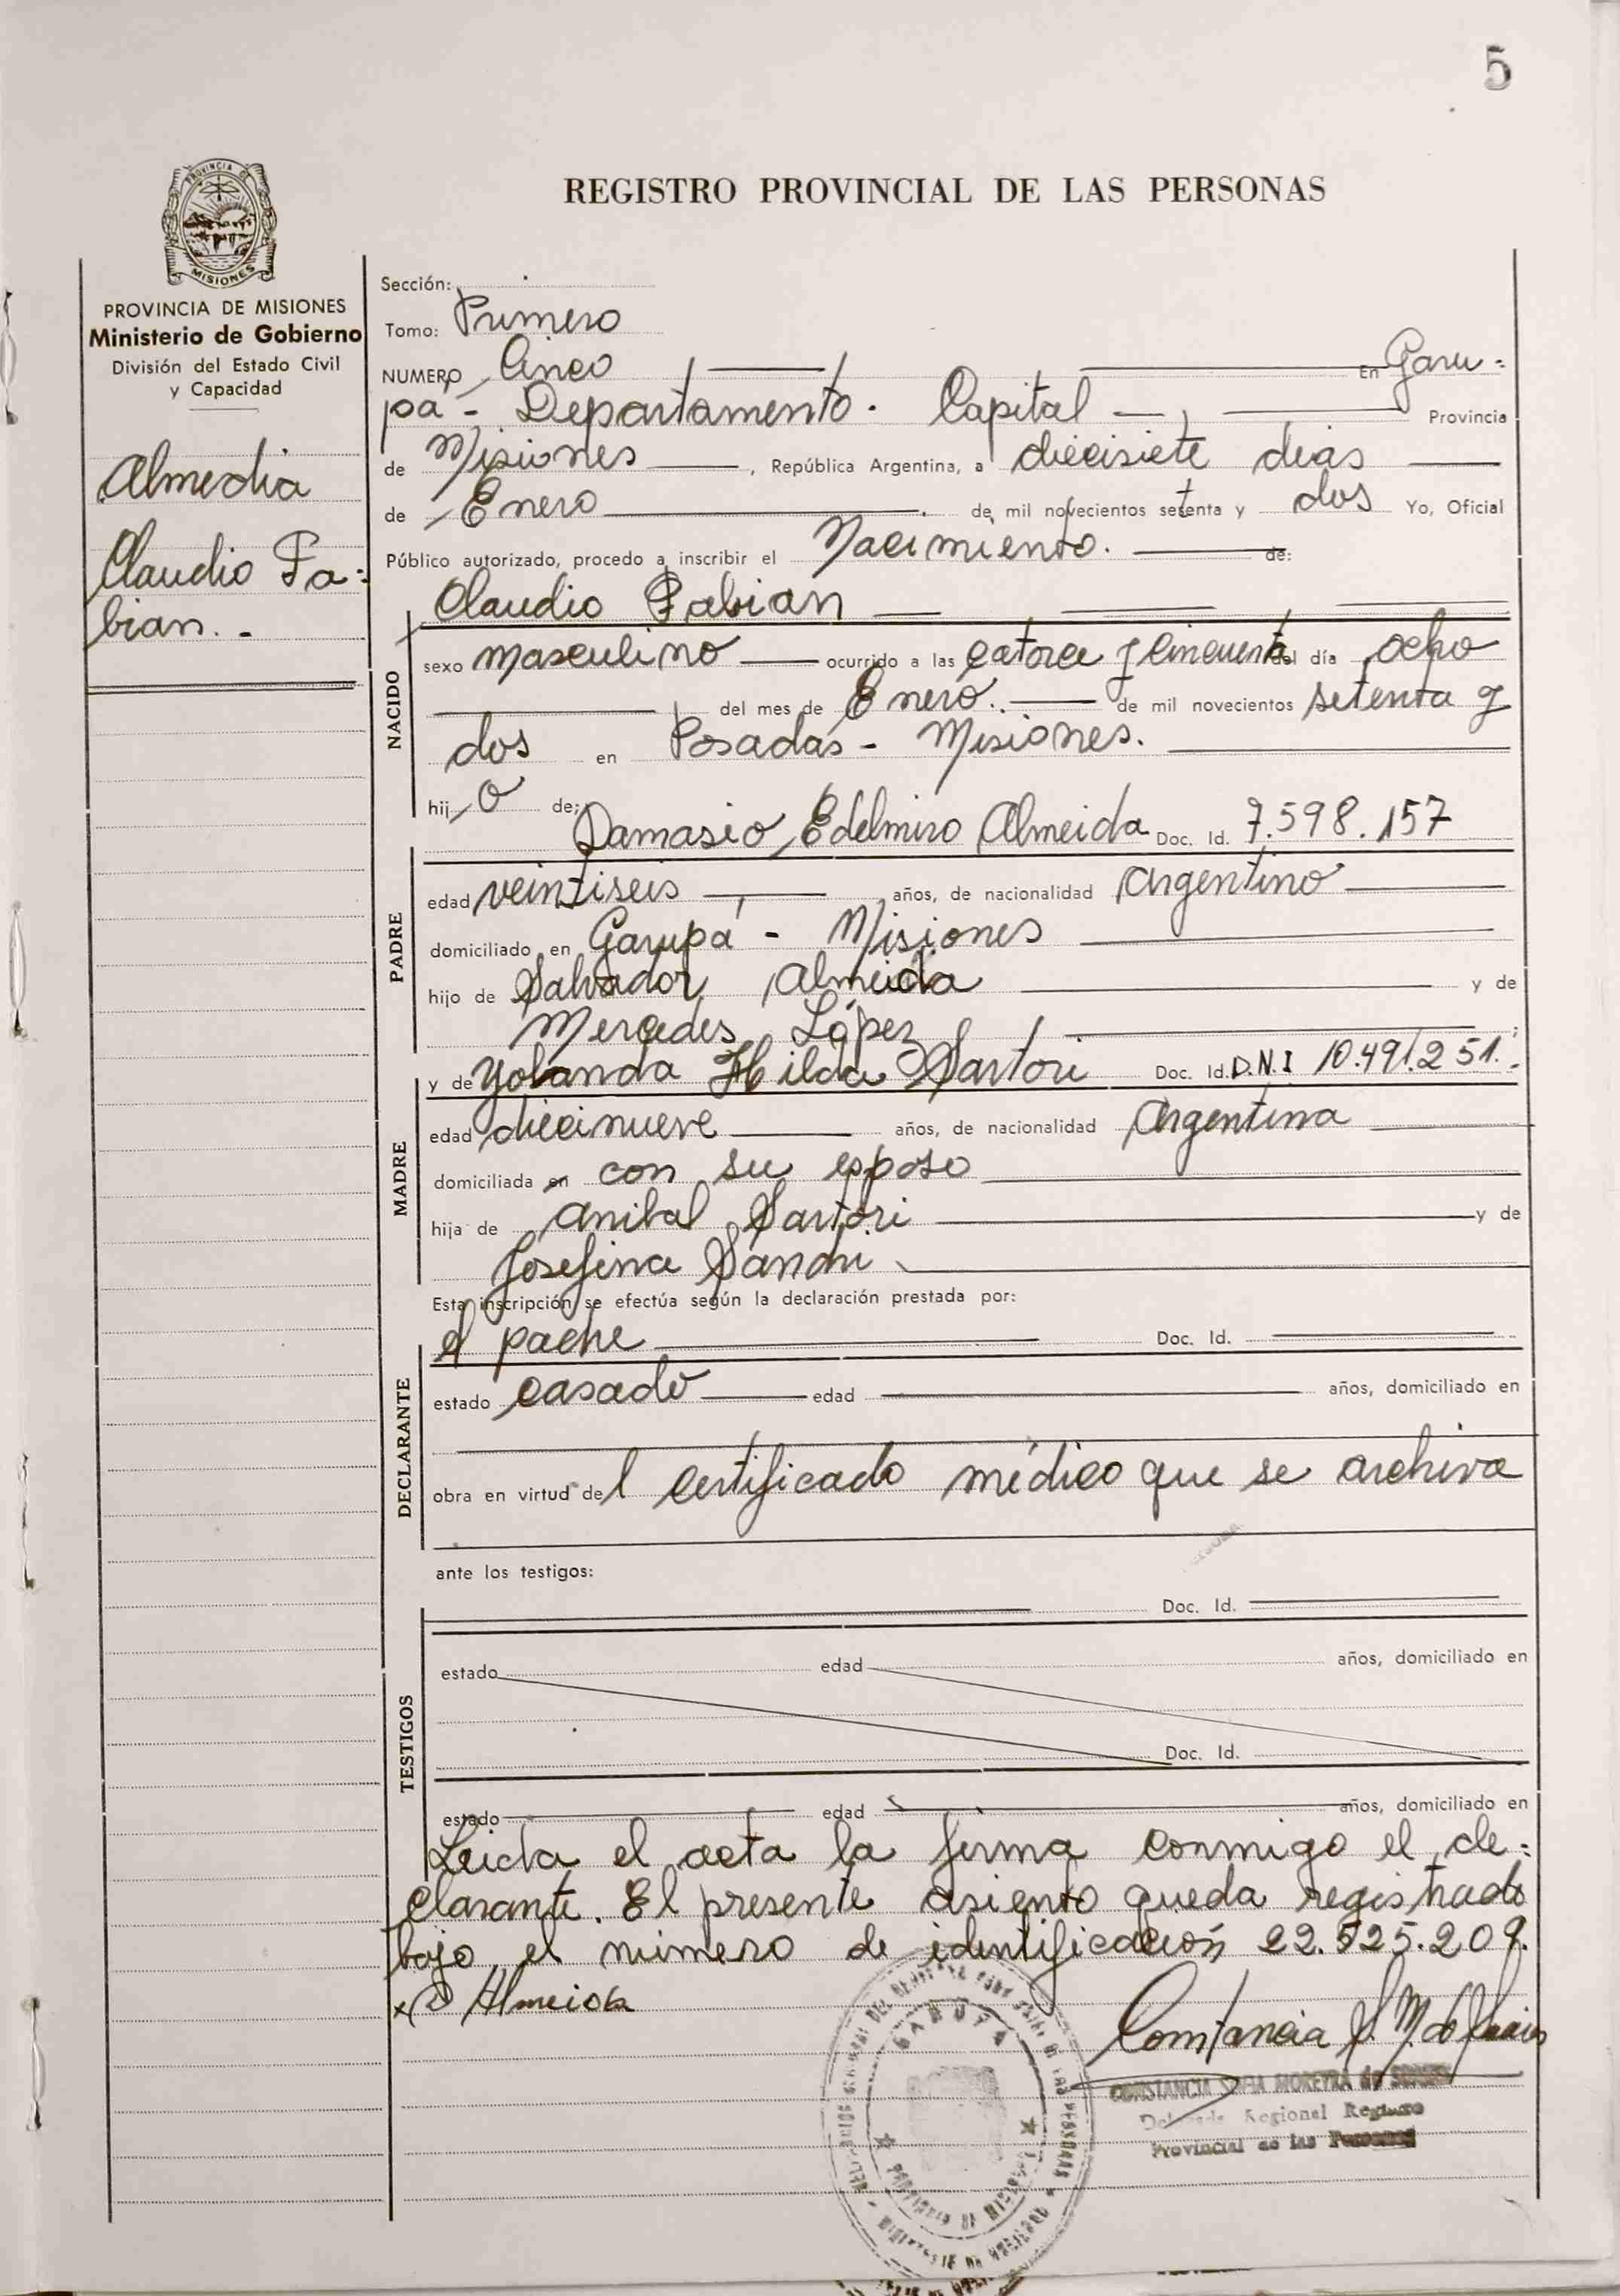 5
REGISTRO PROVINCIAL DE LAS PERSONAS
PROVINCIA DE
MISIONES
PROVINCIA DE MISIONES
Ministerio de Gobierno
División del Estado Civil
y Capacidad
Almedia
Claudio Fa-
bian.-
Sección:
Tomo: Primero
NUMERO Cinco En Garu-
pá - Departamento. Capital Provincia
de Misiones, República Argentina, a diecisiete dias
de Enero de mil novecientos setenta y dos Yo, Oficial
Público autorizado, procedo a inscribir el Nacimiento. de:
Claudio Fabian
NACIDO
sexo masculino ocurrido a las catorce y cincuenta del día ocho
del mes de Enero. de mil novecientos setenta y
dos en Posadas - Misiones.
hij o de:
Damasio Edelmiro Almeida Doc. Id. 7.598.157
PADRE
edad veintiseis años, de nacionalidad Argentino
domiciliado en Garupá - Misiones
hijo de Salvador Almeida y de
Mercedes López
y de Yolanda Hilda Sartori Doc. Id. D.N.I 10.491.251.
MADRE
edad diecinueve años, de nacionalidad Argentina
domiciliada en con su esposo
hija de Anibal Sartori y de
Josefina Sandri
Esta inscripción se efectúa según la declaración prestada por:
el padre Doc. Id.
DECLARANTE
estado casado edad años, domiciliado en
obra en virtud del certificado médico que se archiva
ante los testigos:
Doc. Id.
TESTIGOS
estado edad años, domiciliado en
Doc. Id.
estado edad años, domiciliado en
Leida el acta la firma conmigo el de-
clarante. El presente asiento queda registrado
bajo el número de identificación 22.525.209.
x D Almeida
Constancia S. M. de
CONSTANCIA SOFIA MOREYRA de
Delegada Regional Registro
Provincial de las Personas
GARUPA